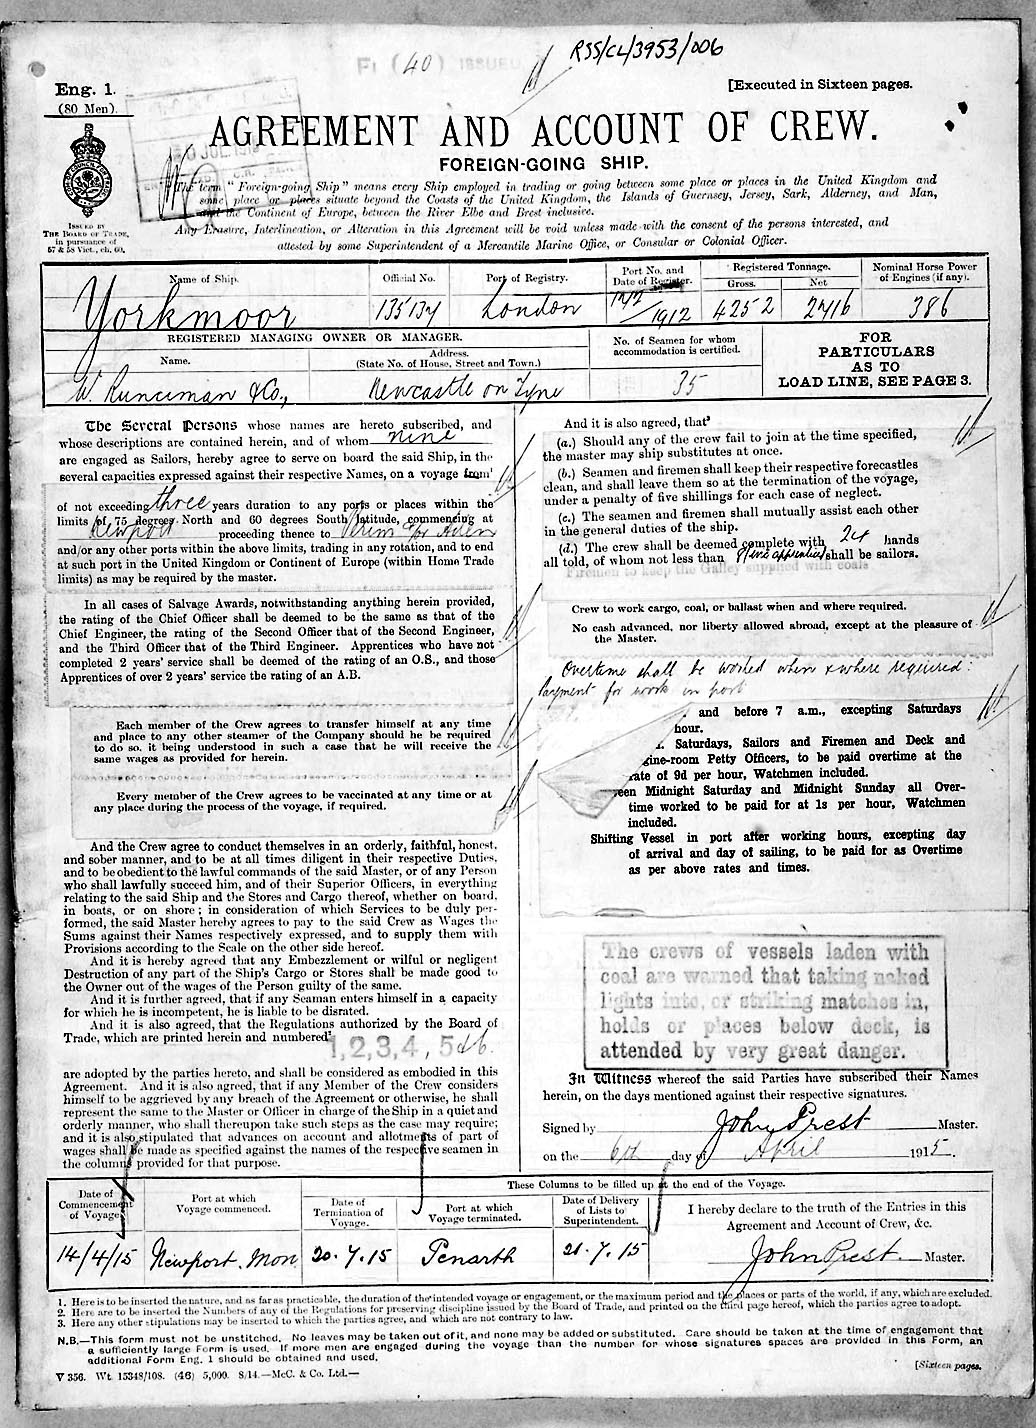 RSS/CL/3953/006
(40) ISSUED
Eng. 1.
(80 Men).
[Executed in Sixteen pages.
AGREEMENT AND ACCOUNT OF CREW.
FOREIGN-GOING SHIP.
The term "Foreign-going Ship" means every Ship employed in trading or going between some place or places in the United Kingdom and
some place or places situate beyond the Coasts of the United Kingdom, the Islands of Guernsey, Jersey, Sark, Alderney, and Man,
and the Continent of Europe, between the River Elbe and Brest inclusive.
Any Erasure, Interlineation, or Alteration in this Agreement will be void unless made with the consent of the persons interested, and
attested by some Superintendent of a Mercantile Marine Office, or Consular or Colonial Officer.
ISSUED BY
THE BOARD OF TRADE,
in pursuance of
57 & 58 Vict., ch. 60.
Name of Ship.
Official No.
Port of Registry.
Port No. and
Date of Register.
Registered Tonnage.
Gross.
Net
Nominal Horse Power
of Engines (if any).
Yorkmoor
London
1912
4252
2716
386
REGISTERED MANAGING OWNER OR MANAGER.
Name.
Address.
(State No. of House, Street and Town.)
No. of Seamen for whom
accommodation is certified.
FOR
PARTICULARS
AS TO
LOAD LINE, SEE PAGE 3.
W. Runciman & Co.,
Newcastle on Tyne
35
The Several Persons whose names are hereto subscribed, and
whose descriptions are contained herein, and of whom nine
are engaged as Sailors, hereby agree to serve on board the said Ship, in the
several capacities expressed against their respective Names, on a voyage from¹
of not exceeding three years duration to any ports or places within the
limits of 75 degrees North and 60 degrees South latitude, commencing at
Newport proceeding thence to
and/or any other ports within the above limits, trading in any rotation, and to end
at such port in the United Kingdom or Continent of Europe (within Home Trade
limits) as may be required by the master.
In all cases of Salvage Awards, notwithstanding anything herein provided,
the rating of the Chief Officer shall be deemed to be the same as that of the
Chief Engineer, the rating of the Second Officer that of the Second Engineer,
and the Third Officer that of the Third Engineer. Apprentices who have not
completed 2 years' service shall be deemed of the rating of an O.S., and those
Apprentices of over 2 years' service the rating of an A.B.
Each member of the Crew agrees to transfer himself at any time
and place to any other steamer of the Company should he be required
to do so, it being understood in such a case that he will receive the
same wages as provided for herein.
Every member of the Crew agrees to be vaccinated at any time or at
any place during the process of the voyage, if required.
And the Crew agree to conduct themselves in an orderly, faithful, honest,
and sober manner, and to be at all times diligent in their respective Duties,
and to be obedient to the lawful commands of the said Master, or of any Person
who shall lawfully succeed him, and of their Superior Officers, in everything
relating to the said Ship and the Stores and Cargo thereof, whether on board,
in boats, or on shore; in consideration of which Services to be duly per-
formed, the said Master hereby agrees to pay to the said Crew as Wages the
Sums against their Names respectively expressed, and to supply them with
Provisions according to the Scale on the other side hereof.
And it is hereby agreed that any Embezzlement or wilful or negligent
Destruction of any part of the Ship's Cargo or Stores shall be made good to
the Owner out of the wages of the Person guilty of the same.
And it is further agreed, that if any Seaman enters himself in a capacity
for which he is incompetent, he is liable to be disrated.
And it is also agreed, that the Regulations authorized by the Board of
Trade, which are printed herein and numbered² 1, 2, 3, 4, 5 & 6.
are adopted by the parties hereto, and shall be considered as embodied in this
Agreement. And it is also agreed, that if any Member of the Crew considers
himself to be aggrieved by any breach of the Agreement or otherwise, he shall
represent the same to the Master or Officer in charge of the Ship in a quiet and
orderly manner, who shall thereupon take such steps as the case may require;
and it is also stipulated that advances on account and allotments of part of
wages shall be made as specified against the names of the respective seamen in
the columns provided for that purpose.
And it is also agreed, that³
(a.) Should any of the crew fail to join at the time specified,
the master may ship substitutes at once.
(b.) Seamen and firemen shall keep their respective forecastles
clean, and shall leave them so at the termination of the voyage,
under a penalty of five shillings for each case of neglect.
(c.) The seamen and firemen shall mutually assist each other
in the general duties of the ship.
(d.) The crew shall be deemed complete with 24 hands
all told, of whom not less than shall be sailors.
Firemen to keep the Galley supplied with coals
Crew to work cargo, coal, or ballast when and where required.
No cash advanced, nor liberty allowed abroad, except at the pleasure of
the Master.
Overtime shall be worked when & where required:
Payment for work in port
and before 7 a.m., excepting Saturdays
hour.
Saturdays, Sailors and Firemen and Deck and
gine-room Petty Officers, to be paid overtime at the
ate of 9d per hour, Watchmen included.
een Midnight Saturday and Midnight Sunday all Over-
time worked to be paid for at 1s per hour, Watchmen
included.
Shifting Vessel in port after working hours, excepting day
of arrival and day of sailing, to be paid for as Overtime
as per above rates and times.
The crews of vessels laden with
coal are warned that taking naked
lights into, or striking matches in,
holds or places below deck, is
attended by very great danger.
In Witness whereof the said Parties have subscribed their Names
herein, on the days mentioned against their respective signatures.
Signed by John Prest Master.
on the 6th day of April 1915.
These Columns to be filled up at the end of the Voyage.
Date of
Commencement
of Voyage.
Port at which
Voyage commenced.
Date of
Termination of
Voyage.
Port at which
Voyage terminated.
Date of Delivery
of Lists to
Superintendent.
I hereby declare to the truth of the Entries in this
Agreement and Account of Crew, &c.
14/4/15
Newport. Mon
20.7.15
Penarth
21.7.15
John Prest Master.
1. Here is to be inserted the nature, and as far as practicable, the duration of the intended voyage or engagement, or the maximum period and the places or parts of the world, if any, which are excluded.
2. Here are to be inserted the Numbers of any of the Regulations for preserving discipline issued by the Board of Trade, and printed on the third page hereof, which the parties agree to adopt.
3. Here any other stipulations may be inserted to which the parties agree, and which are not contrary to law.
N.B.—This form must not be unstitched. No leaves may be taken out of it, and none may be added or substituted. Care should be taken at the time of engagement that
a sufficiently large Form is used. If more men are engaged during the voyage than the number for whose signatures spaces are provided in this Form, an
additional Form Eng. 1 should be obtained and used.
V 356. Wt. 15348/108. (46) 5,000. 8/14.—McC. & Co. Ltd.—
[Sixteen pages.